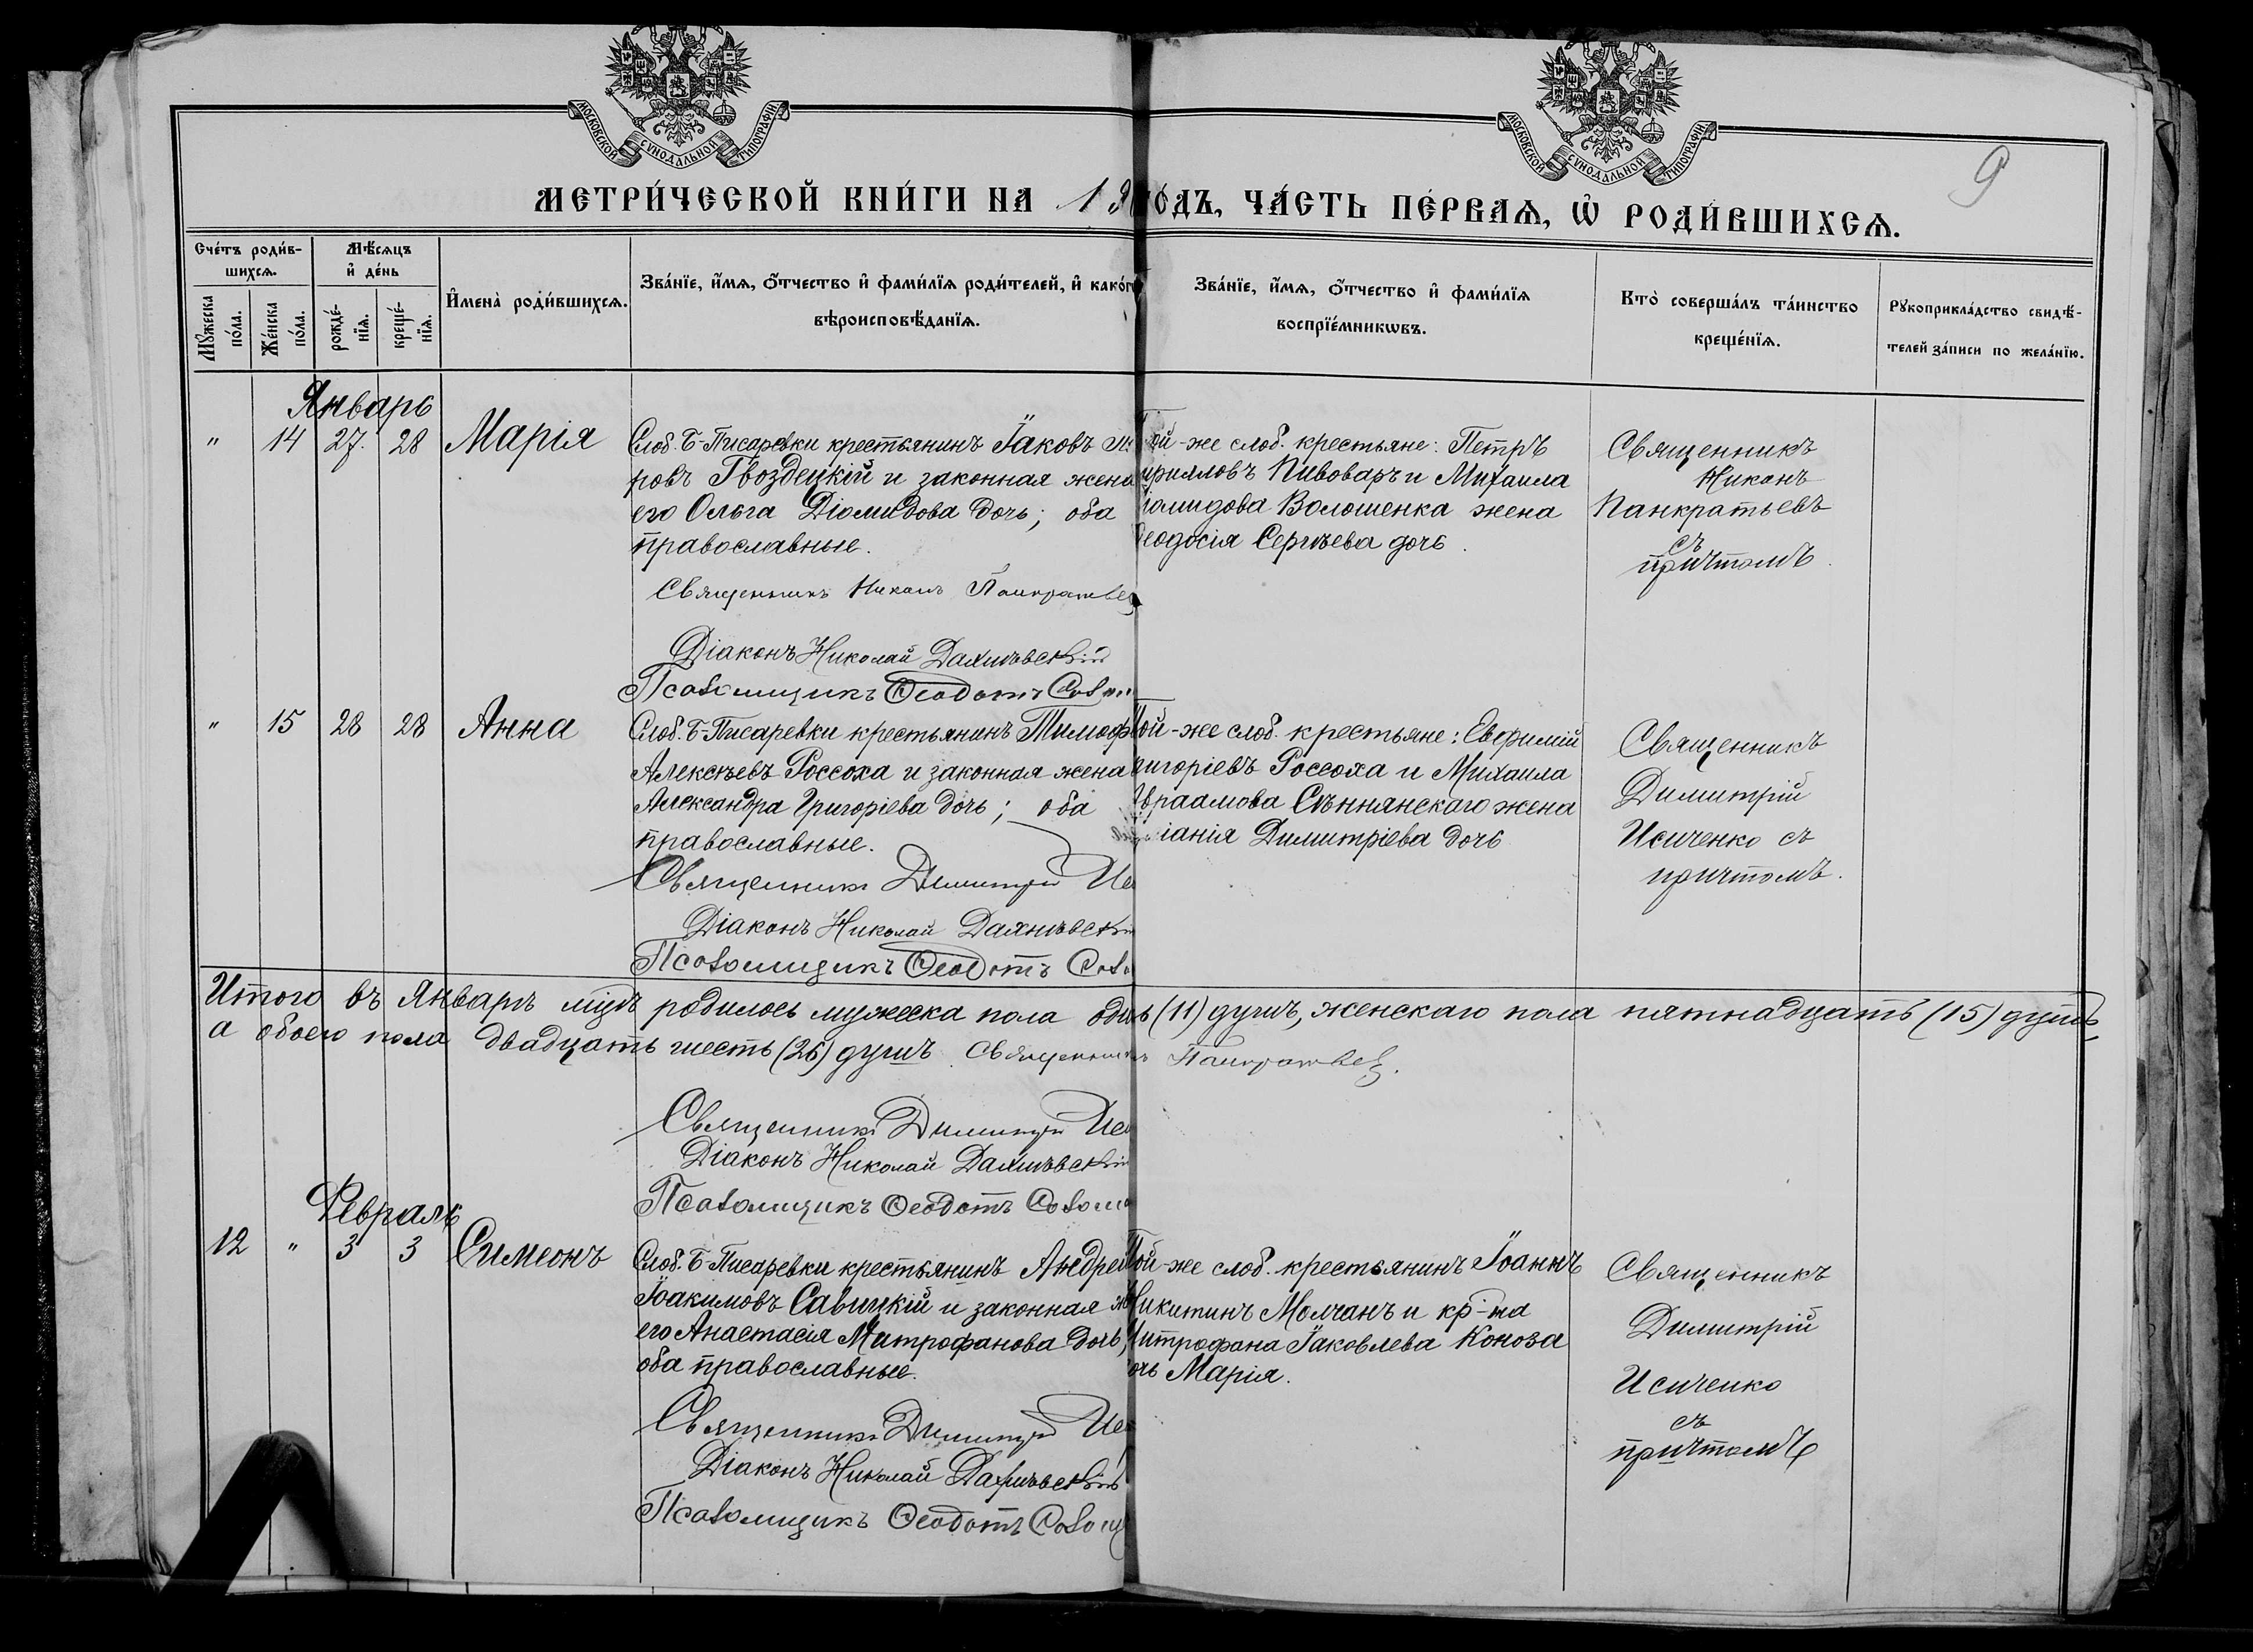 МОСКОВСКОЙ СѴНОДАЛЬНОЙ ТИПОГРАФІИ
МОСКОВСКОЙ СѴНОДАЛЬНОЙ ТИПОГРАФІИ
9
МЕТРИ́ЧЕСКОЙ КНИ́ГИ НА
ЧА́СТЬ ПЕ́РВАѦ, Ѡ҆ РОДИ́ВШИХСѦ.
Сче́тъ роди́в-
шихсѧ.
Мꙋ́жеска
по́ла.
Же́нска
по́ла.
Мѣ́сѧцъ
и҆ де́нь
рожде́-
нїѧ.
креще́-
нїѧ.
И҆мена̀ роди́вшихсѧ.
Зва́нїе, и҆́мѧ, ѻ҆́тчество и҆ фами́лїѧ роди́телей, и҆ како́г
вѣроисповѣ́данїѧ.
Зва́нїе, и҆́мѧ, ѻ҆́тчество и҆ фами́лїѧ
воспрїе́мникѡвъ.
Кто̀ соверша́лъ та́инство
креще́нїѧ.
Рꙋкоприкла́дство свидѣ́-
телей за́писи по жела́нїю.
Январь
" 14 27. 28 Марія
Слоб. Б-Писаревки крестьянинъ Іаковъ
ровъ Гвоздецкій и законная жена
его Ольга Діомидова дочь; оба
православные.
Священникъ Никонъ Панкратьев
Діаконъ Николай
Псаломщикъ Ѳеодотъ
Той-же слоб. крестьяне: Петръ
Кирилловъ Пивоваръ и Михаила
Діомидова Волошенка жена
Ѳеодосія Сергѣева дочь.
Священникъ
Никонъ
Панкратьевъ
съ
причтомъ.
" 15 28 28 Анна
Слоб. Б-Писаревки крестьянинъ Тимоф
Алексѣевъ Россоха и законная жена
Александра Григоріева дочь; оба
православные.
Священникъ Димитрій Ис
Діаконъ Николай
Псаломщикъ Ѳеодотъ
Той-же слоб. крестьяне: Евфимій
Григоріевъ Россоха и Михаила
Авраамова Сѣннянскаго жена
Димитріева дочь
Священникъ
Димитрій
Исиченко съ
причтомъ.
Итого въ Январѣ мцѣ родилось мужеска пола один (11) душъ, женскаго пола пятнадцать (15) душъ,
а обоего пола двадцать шесть (26) душъ. Священникъ Панкратьев.
Священникъ Димитрій Ис
Діаконъ Николай
Псаломщикъ Ѳеодотъ
Февраль
12 " 3 3 Симеонъ
Слоб. Б-Писаревки крестьянинъ Андрей
Іоакимовъ Савицкій и законная
его Анастасія Митрофанова дочь,
оба православные.
Священникъ Димитрій Ис
Діаконъ Николай
Псаломщикъ Ѳеодотъ
Той-же слоб. крестьянинъ Іоаннъ
Никитинъ Молчанъ и кр-на
Митрофана Іаковлева Коноза
дочь Марія.
Священникъ
Димитрій
Исиченко
съ
причтомъ